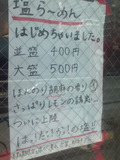 塩らーめん
はじめちゃいました。
並盛 400円
大盛 500円
ほんのり胡麻の香り
さっぱりレモンの酸味に
ついに上陸